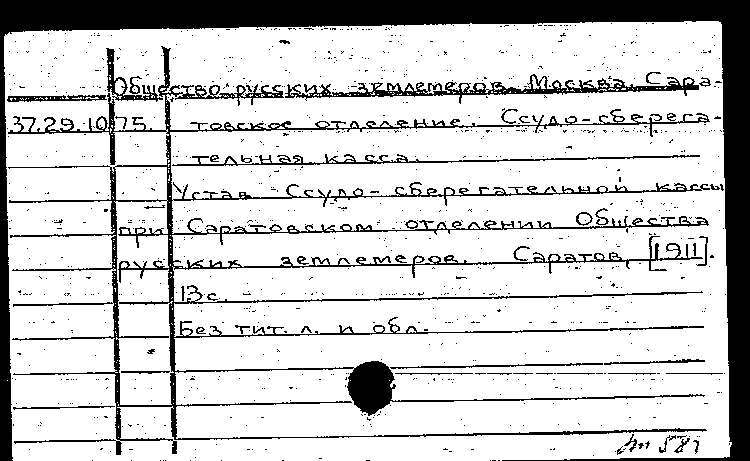 Общество русских землемеров. Москва. Сара-
37.29.10.75. товское отделение. Ссудо-сберега-
тельная касса.
Устав Ссудо-сберегательной кассы
при Саратовском отделении Общества
русских землемеров. Саратов, [1911].
13с.
Без тит. л. и обл.